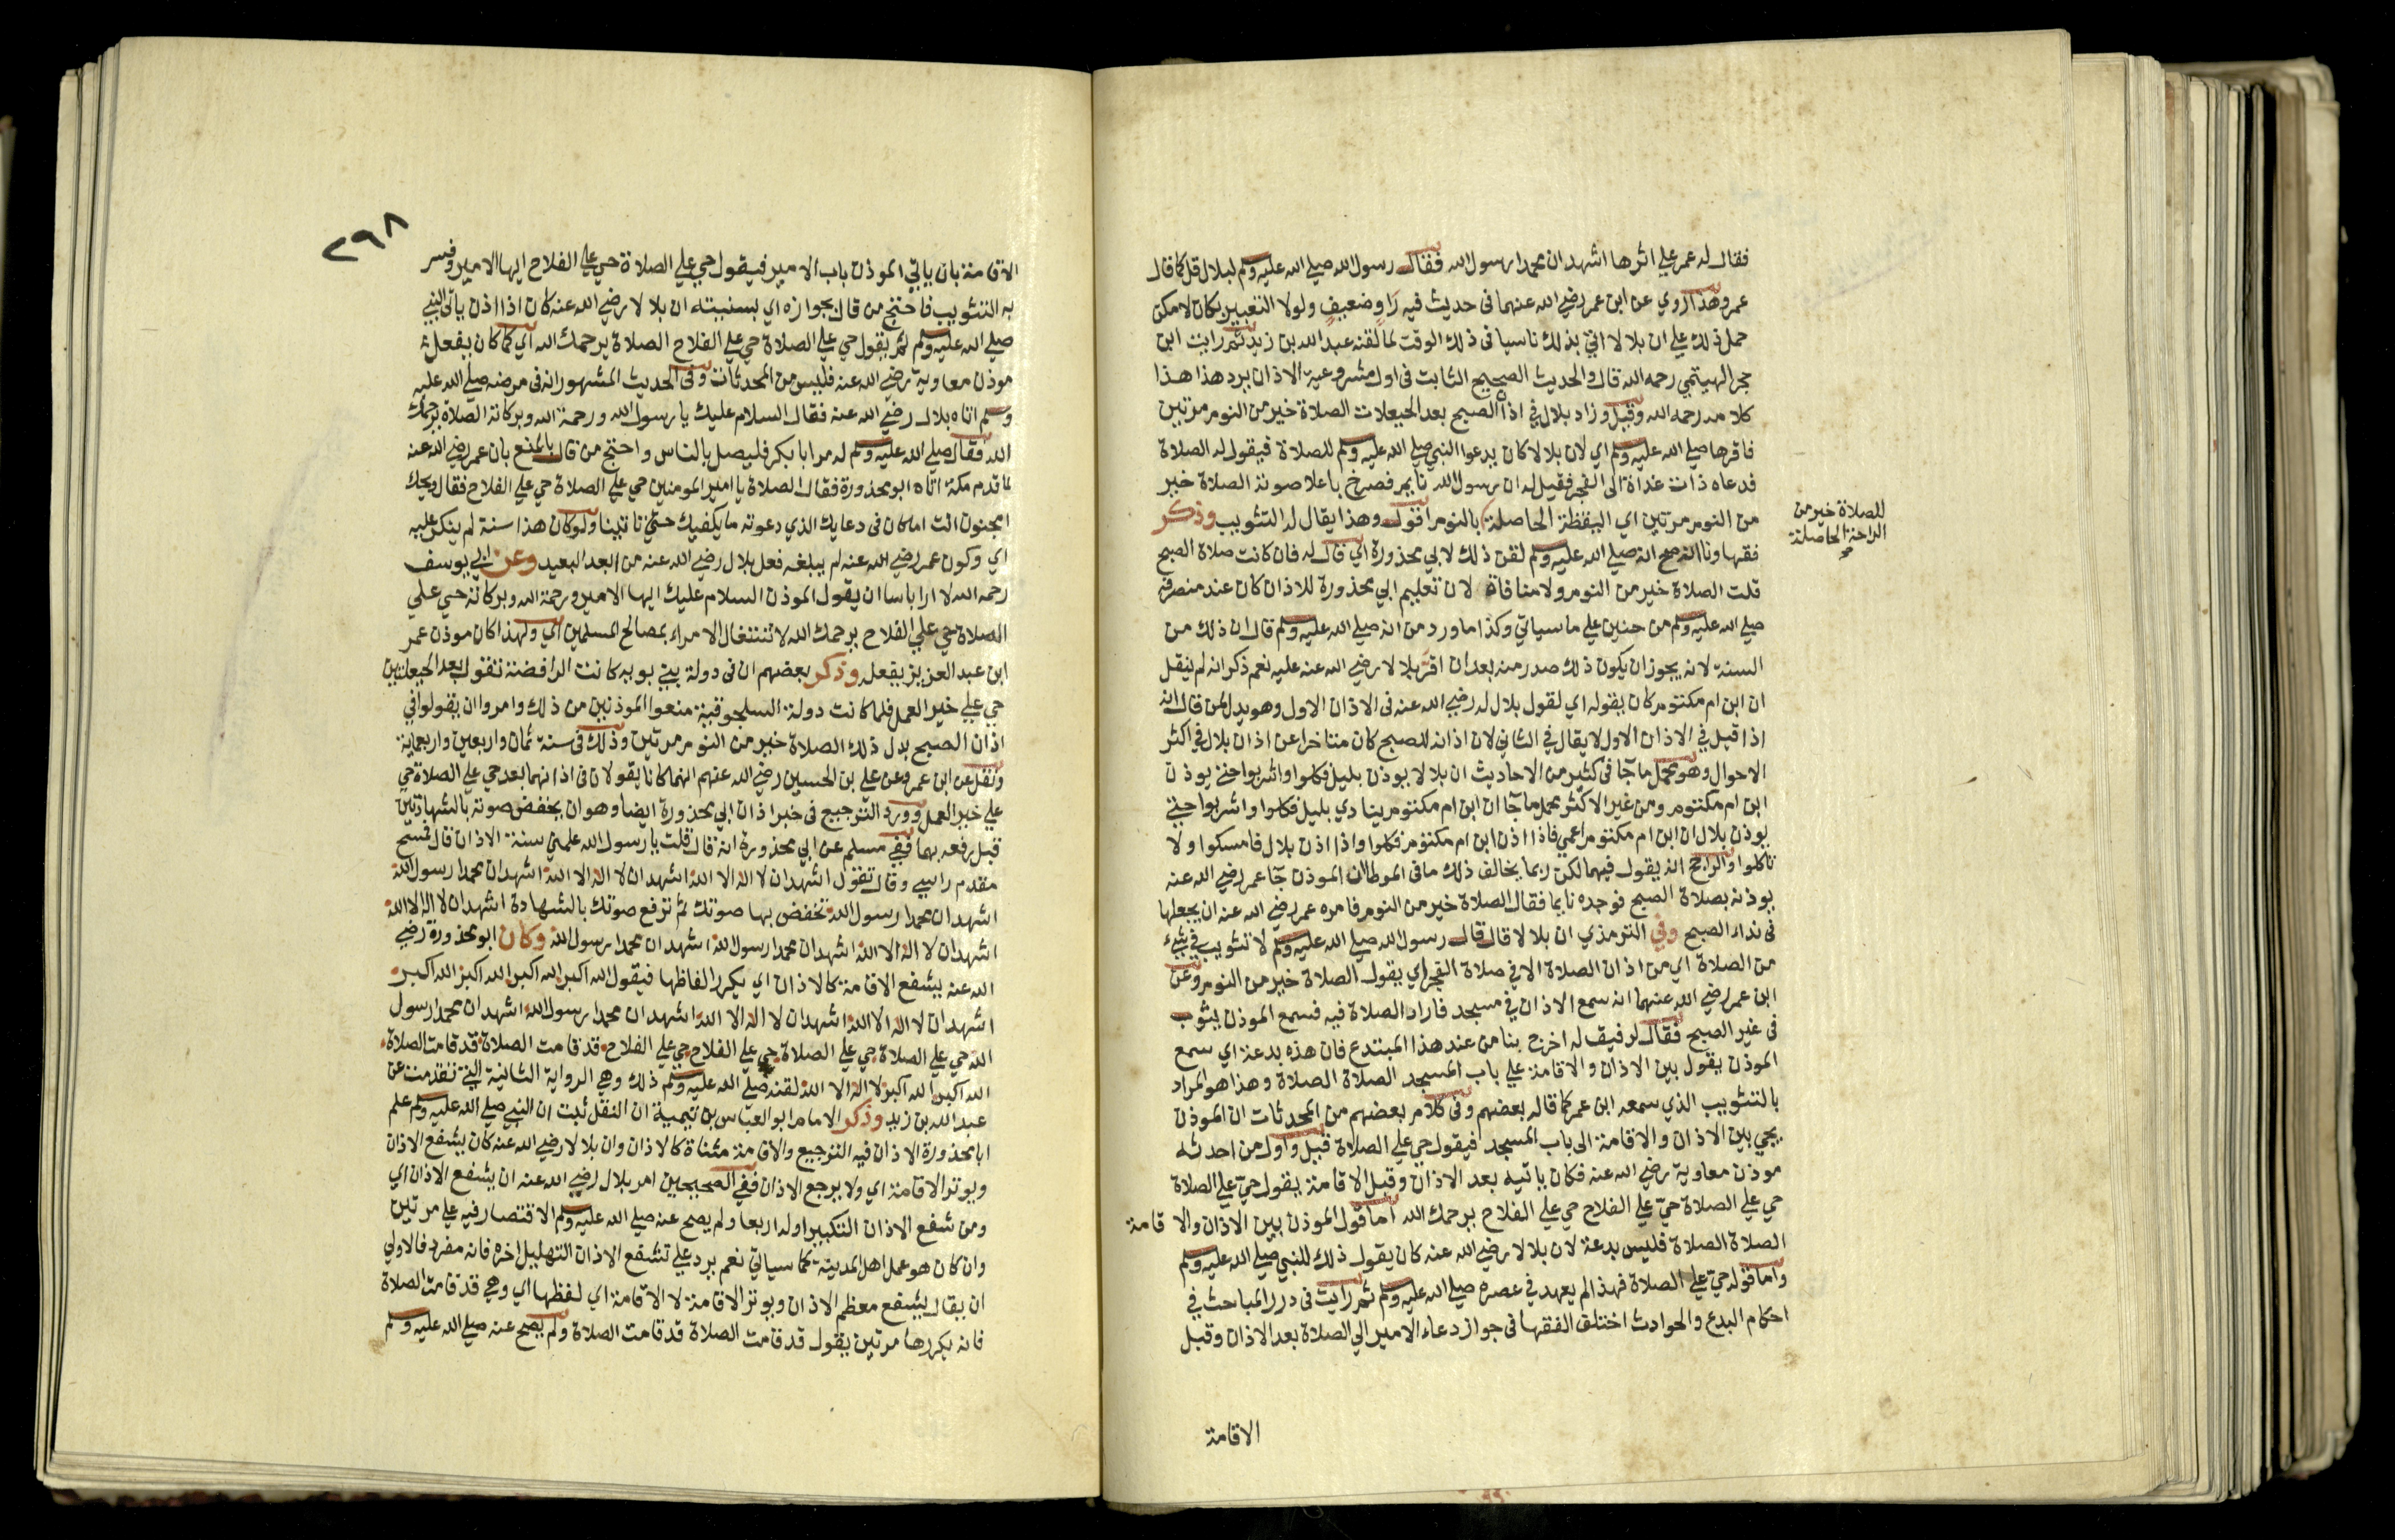 فقال له عمر علي اثرها اشهد ان محمدا رسول الله فقال رسول الله صلي الله عليه وسلم لبلال قل كما قال
عمر وهذا روي عن ابن عمر رضي الله عنهما في حديث فيه راو ضعيف ولولا التعبير بكان لامكن
حمل ذلك علي ان بلالا اتي بذلك ناسيا في ذلك الوقت لما لقنه عبد الله بن زيد ثم رايت ابن
حجر الهيتمي رحمه الله قال والحديث الصحيح الثابت في اول مشروعية الاذان يرد هذا هذا
كلامه رحمه الله وقيل وزاد بلال في اذان الصبح بعد الحيعلات الصلاة خير من النوم مرتين
فاقرها صلي الله عليه وسلم اي لان بلالا كان يدعوا النبي صلي الله عليه وسلم للصلاة فيقول له الصلاة
فدعاه ذات غداة الي الفجر فقيل له ان رسول الله نايم فصرخ باعلا صوته الصلاة خير
من النوم مرتين اي اليقظة الحاصلة بالنوم اقول وهذا يقال له التثويب وذكر
للصلاة خير من
الراحة الحاصلة
صح
فقهاونا انه صح انه صلي الله عليه وسلم لقن ذلك لابي محذورة اي قال له فان كانت صلاة الصبح
قلت الصلاة خير من النوم ولا منافاة لان تعليم ابي محذورة للاذان كان عند منصرفه
صلي الله عليه وسلم من حنين علي ما سياتي وكذا ما ورد من انه صلي الله عليه وسلم قال ان ذلك من
السنة لانه يجوز ان يكون ذلك صدر منه بعد ان اقر بلالا رضي الله عنه عليه نعم ذكر انه لم ينقل
ان ابن ام مكتوم كان يقوله اي لقول بلال له رضي الله عنه في الاذان الاول وهو يدل لمن قال انه
اذا قيل في الاذان الاول لا يقال في الثاني لان اذانه للصبح كان متاخرا عن اذان بلال في اكثر
الاحوال وهو محمل ما جآ في كثير من الاحاديث ان بلالا يوذن بليل فكلوا واشربوا حتي يوذن
ابن ام مكتوم ومن غير الاكثر محمل ما جآ ان ابن ام مكتوم ينادي بليل فكلوا واشربوا حتي
يوذن بلال ان ابن ام مكتوم اعمي فاذا اذن ابن ام مكتوم فكلوا واذا اذن بلال فامسكوا ولا
تاكلوا والراجح انه يقول فيهما لكن ربما يخالف ذلك ما في الموطا ان الموذن جآ عمر رضي الله عنه
يوذنه بصلاة الصبح فوجده نايما فقال الصلاة خير من النوم فامره عمر رضي الله عنه ان يجعلها
في نداء الصبح وفي الترمذي ان بلالا قال قال رسول الله صلي الله عليه وسلم لا تثويب في شيء
من الصلاة اي من اذان الصلاة الا في صلاة الفجر اي يقول الصلاة خير من النوم وعن
ابن عمر رضي الله عنهما انه سمع الاذان في مسجد فاراد الصلاة فيه فسمع الموذن يثوب
في غير الصبح فقال لرفيق له اخرج بنا من عند هذا المبتدع فان هذه بدعة اي سمع
الموذن يقول بين الاذان والاقامة علي باب المسجد الصلاة الصلاة وهذا هو المراد
بالتثويب الذي سمعه ابن عمر كما قاله بعضهم وفي كلام بعضهم من المحدثات ان الموذن
يجي بين الاذان والاقامة الي باب المسجد فيقول حي علي الصلاة قيل واول من احدثه
موذن معاوية رضي الله عنه فكان ياتيه بعد الاذان وقبل الاقامة يقول حي علي الصلاة
حي علي الصلاة حي علي الفلاح حي علي الفلاح يرحمك الله اما قول الموذن بين الاذان والاقامة
الصلاة الصلاة فليس بدعة لان بلالا رضي الله عنه كان يقول ذلك للنبي صلي الله عليه وسلم
واما قوله حي علي الصلاة فهذا لم يعهد في عصره صلي الله عليه وسلم ثم رايت في درر المباحث في
احكام البدع والحوادث اختلف الفقها في جواز دعاء الامير الي الصلاة بعد الاذان وقبل
الاقامة
٢٩٨
الاقامة بان ياتي الموذن باب الامير فيقول حي علي الصلاة حي علي الفلاح ايها الامير وفسر
به التثويب فاحتج من قال بجوازه اي بسنيته ان بلالا رضي الله عنه كان اذا اذن ياتي النبي
صلي الله عليه وسلم ثم يقول حي علي الصلاة حي علي الفلاح الصلاة يرحمك الله اي كما كان يفعل
موذن معاوية رضي الله عنه فليس من المحدثات وفي الحديث المشهور انه في مرضه صلي الله عليه
وسلم اتاه بلال رضي الله عنه فقال السلام عليك يا رسول الله ورحمة الله وبركاته الصلاة يرحمك
الله فقال صلي الله عليه وسلم له مر ابا بكر فليصل بالناس واحتج من قال بالمنع بان عمر رضي الله عنه
لما قدم مكة اتاه ابو محذورة فقال الصلاة يا امير المومنين حي علي الصلاة حي علي الفلاح فقال ويحك
امجنون انت اما كان في دعايك الذي دعوته ما يكفيك حتي تاتينا ولو كان هذا سنة لم ينكر عليه
اي وكون عمر رضي الله عنه لم يبلغه فعل بلال رضي الله عنه من البعد البعيد وعن ابي يوسف
رحمه الله لا ارا باسا ان يقول الموذن السلام عليك ايها الامير ورحمة الله وبركاته حي علي
الصلاة حي علي الفلاح يرحمك الله لاشتغال الامراء بمصالح المسلمين اي ولهذا كان موذن عمر
ابن عبد العزيز يفعله وذكر بعضهم ان في دولة بني بويه كانت الرافضة تقول بعد الحيعلتين
حي علي خير العمل فلما كانت دولة السلجوقية منعوا الموذنين من ذلك وامروا ان يقولوا في
اذان الصبح بدل ذلك الصلاة خير من النوم مرتين وذلك في سنة ثمان واربعين واربعماية
ونقل عن ابن عمر وعن علي بن الحسين رضي الله عنهم انهما كانا يقولان في اذانهما بعد حي علي الصلاة حي
علي خير العمل وورد الترجيع في خبر اذان ابي محذورة ايضا وهو ان يخفض صوته بالشهادتين
قبل رفعه بهما ففي مسلم عن ابي محذورة انه قال قلت يا رسول الله علمني سنة الاذان قال فمسح
مقدم راسي وقال تقول اشهد ان لا اله الا الله اشهد ان لا اله الا الله اشهد ان محمدا رسول الله
اشهد ان محمدا رسول الله تخفض بها صوتك ثم ترفع صوتك بالشهادة اشهد ان لا اله الا الله
اشهد ان لا اله الا الله اشهد ان محمدا رسول الله اشهد ان محمدا رسول الله وكان ابو محذورة رضي
الله عنه يشفع الاقامة كالاذان اي يكرر الفاظها فيقول الله اكبر الله اكبر الله اكبر الله اكبر
اشهد ان لا اله الا الله اشهد ان لا اله الا الله اشهد ان محمدا رسول الله اشهد ان محمدا رسول
الله حي علي الصلاة حي علي الصلاة حي علي الفلاح حي علي الفلاح قد قامت الصلاة قد قامت الصلاة
الله اكبر الله اكبر لا اله الا الله لقنه صلي الله عليه وسلم ذلك وهي الرواية الثانية التي تقدمت عن
عبد الله بن زيد وذكر الامام ابو العباس بن تيمية ان النقل ثبت ان النبي صلي الله عليه وسلم علم
ابا محذورة الاذان فيه الترجيع والاقامة مثناة كالاذان وان بلالا رضي الله عنه كان يشفع الاذان
ويوتر الاقامة اي ولا يرجع الاذان ففي الصحيحين امر بلال رضي الله عنه ان يشفع الاذان اي
ومن شفع الاذان التكبير اوله اربعا ولم يصح عنه صلي الله عليه وسلم الاقتصار فيه علي مرتين
وان كان هو عمل اهل المدينة كما سياتي نعم يرد علي تشفع الاذان التهليل اخره فانه مفرد فالاولي
ان يقال يشفع معظم الاذان ويوتر الاقامة لا الاقامة اي لفظها اي وهي قد قامت الصلاة
فانه يكررها مرتين يقول قد قامت الصلاة قد قامت الصلاة ولم يصح عنه صلي الله عليه وسلم